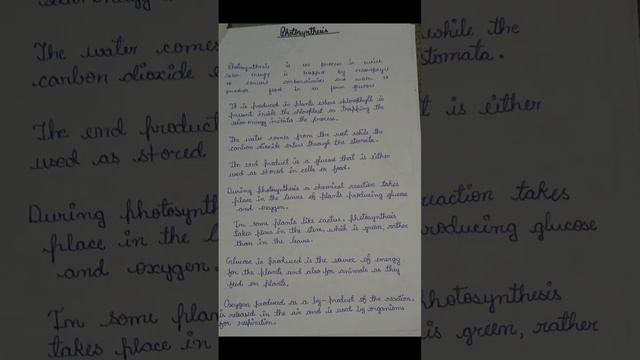 Photosynthesis
Photosynthesis is in process in which
Solar energy is trapped by
to convert carbondioxide and water to
produce food in form glucose
It is produced in plants when chlorophyll is
present inside the chloroplast as trapping the
solar energy initiates the process.
The water comes from the root while the
carbon dioxide enters through the stomata.
The end product is a glucose that is either
used as stored in cells as food.
During photosynthesis a chemical reaction takes
place in the leaves of plants producing glucose
and oxygen.
In some plants like cactus, photosynthesis
takes place in the stem, which is green, rather
than in the leaves.
Glucose is produced is the source of energy
for the plants and also for animals as they
feed on plants.
Oxygen produced as a by-product of the reaction,
is released in the air and is used by organisms
for respiration.